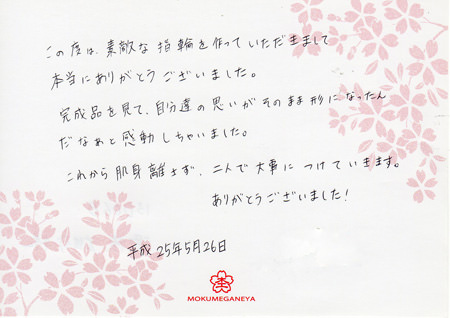 この度は、素敵な指輪を作っていただきまして
本当にありがとうございました。
完成品を見て、自分達の思いがそのまま形になったん
だなぁと感動しちゃいました。
これから肌身離さず、二人で大事につけていきます。
ありがとうございました！
平成25年5月26日
MOKUMEGANEYA